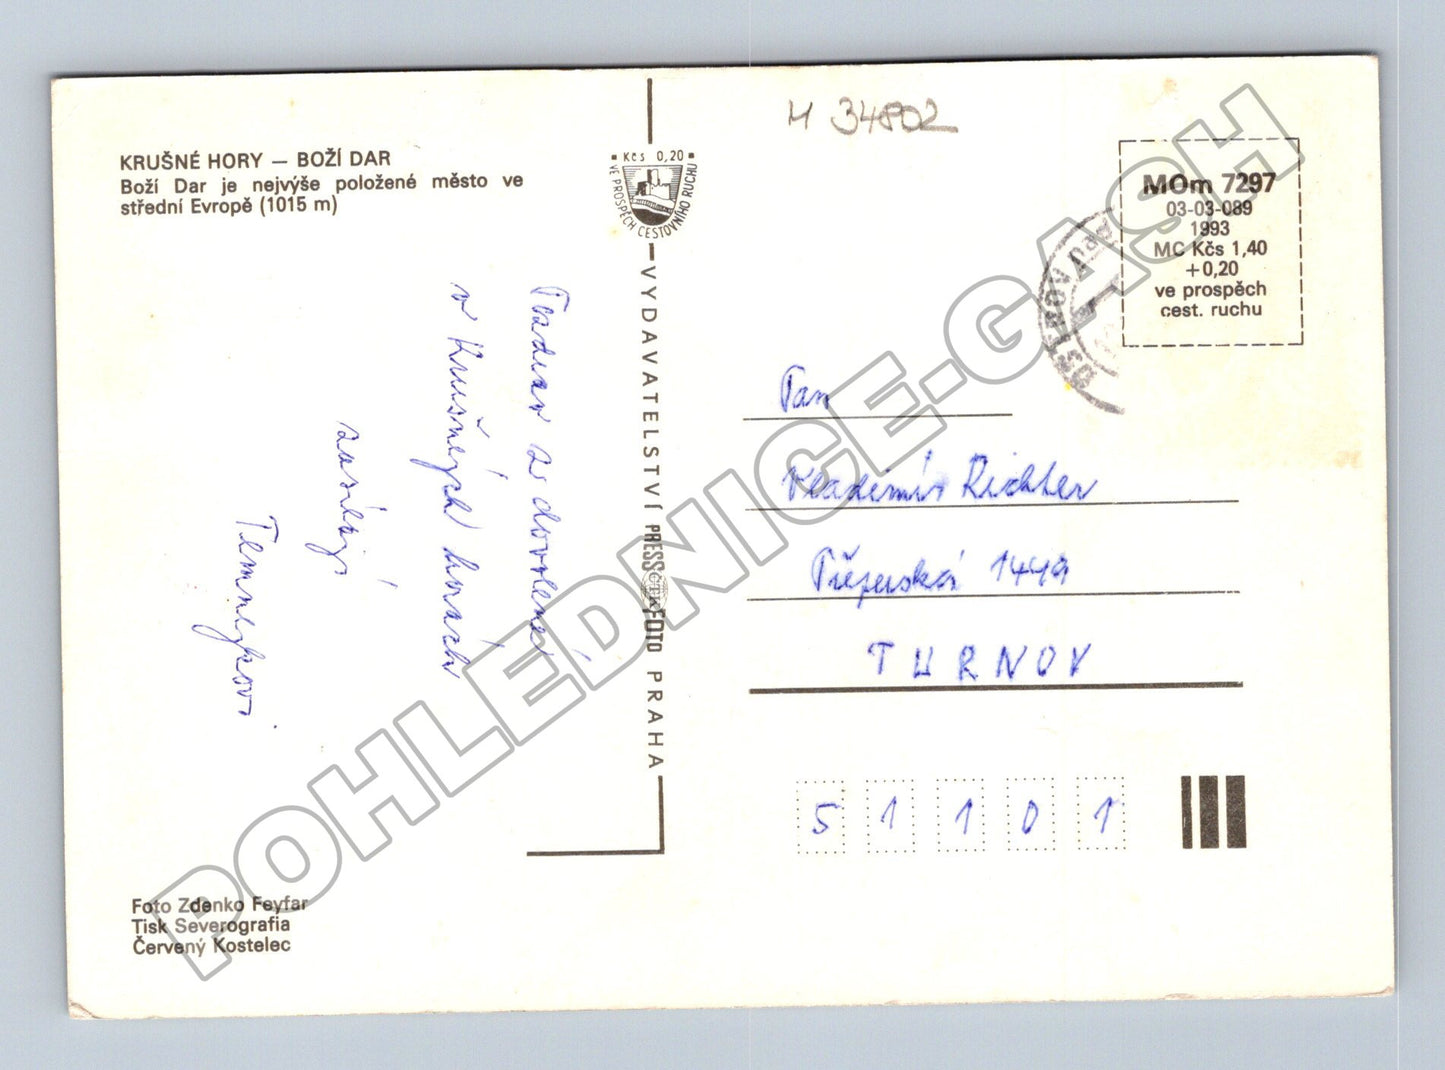 H 34802
KRUŠNÉ HORY — BOŽÍ DAR
Boží Dar je nejvýše položené město ve
střední Evropě (1015 m)
Kčs 0,20
VE PROSPĚCH CESTOVNÍHO RUCHU
MOm 7297
03-03-089
1993
MC Kčs 1,40
+0,20
ve prospěch
cest. ruchu
v Krušných horách
zasílají
VYDAVATELSTVÍ PRESSFOTO PRAHA
ČTK
Pan
Vladimír Richter
1449
TURNOV
51101
Foto Zdenko Feyfar
Tisk Severografia
Červený Kostelec
POHLEDNICE-GASH